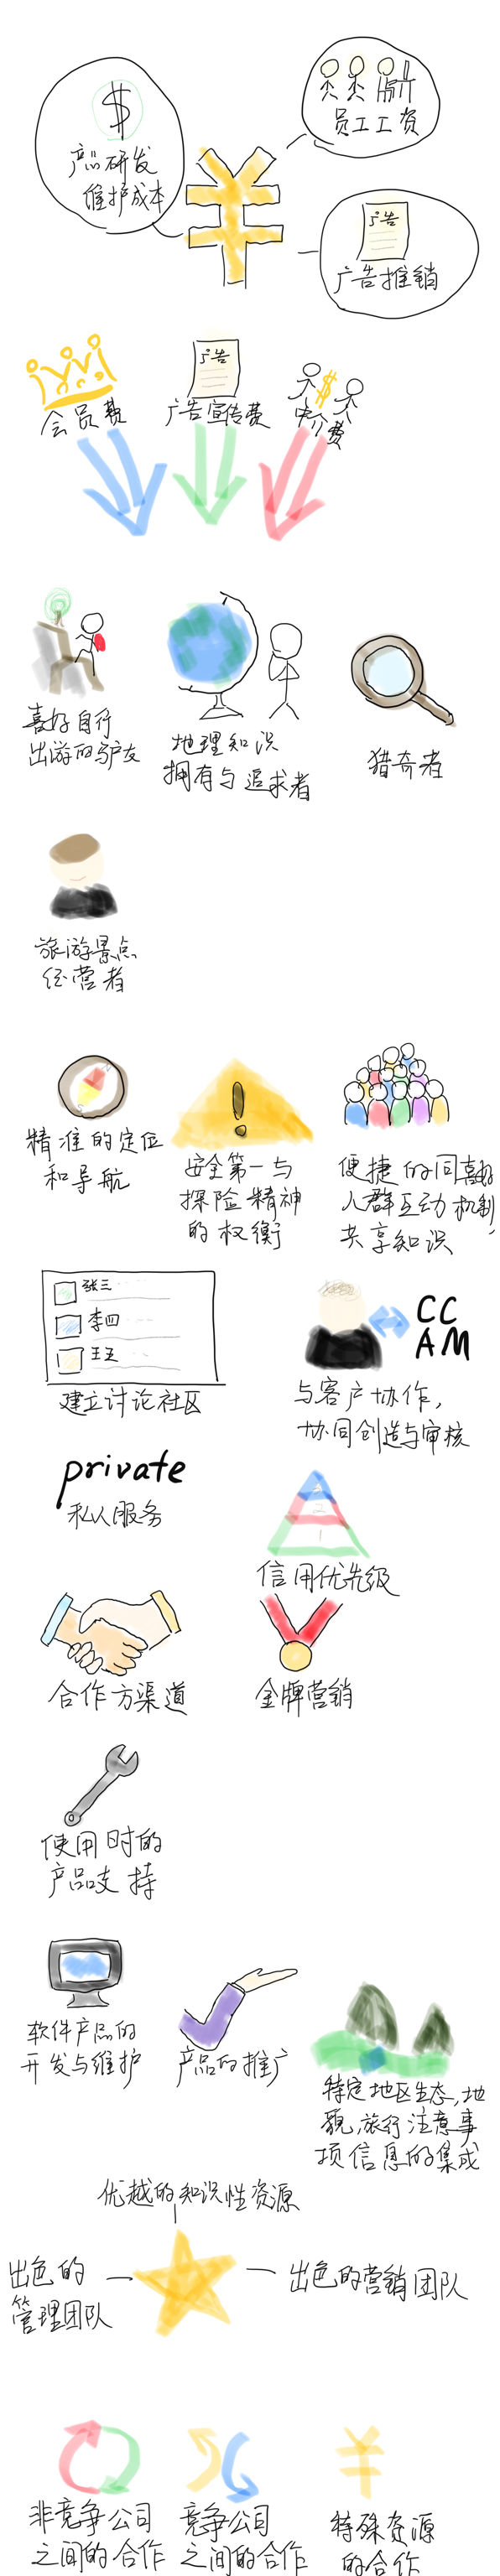 $
产品研发
维护成本
¥
员工工资
广告
广告推销
会员费
广告
广告宣传费
$
中介费
喜好自行
出游的驴友
地理知识
拥有与追求者
猎奇者
旅游景点
经营者
N
S
精准的定位
和导航
!
安全第一与
探险精神
的权衡
便捷的同喜好
人群互动机制,
共享知识
张三
李四
王五
建立讨论社区
CC
AM
与客户协作,
协同创造与审核
private
私人服务
3
2
1
信用优先级
合作方渠道
金牌营销
使用时的
产品支持
软件产品的
开发与维护
产品的推广
特定地区生态,地
貌,旅行注意事
项信息的集成
优越的知识性资源
出色的
管理团队
出色的营销团队
非竞争公司
之间的合作
竞争公司
之间的合作
¥
特殊资源
的合作